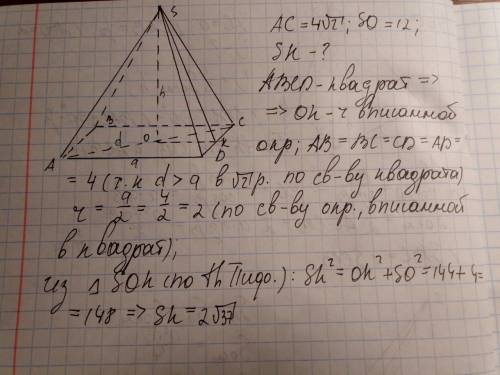 S
AC=4√2; SO=12;
SK-?
ABCD-квадрат =>
=> OK-r вписанной
окр; AB=BC=CD=AD=
h
B
C
d
O
K
A
a
D
=4 (т.к d>a в √2 р. по св-ву квадрата)
r=a/2=4/2=2 (по св-ву окр., вписанной
в квадрат),
Из △SOK (по th Пифо.): SK²=OK²+SO²=144+4=
=148 => SK=2√37